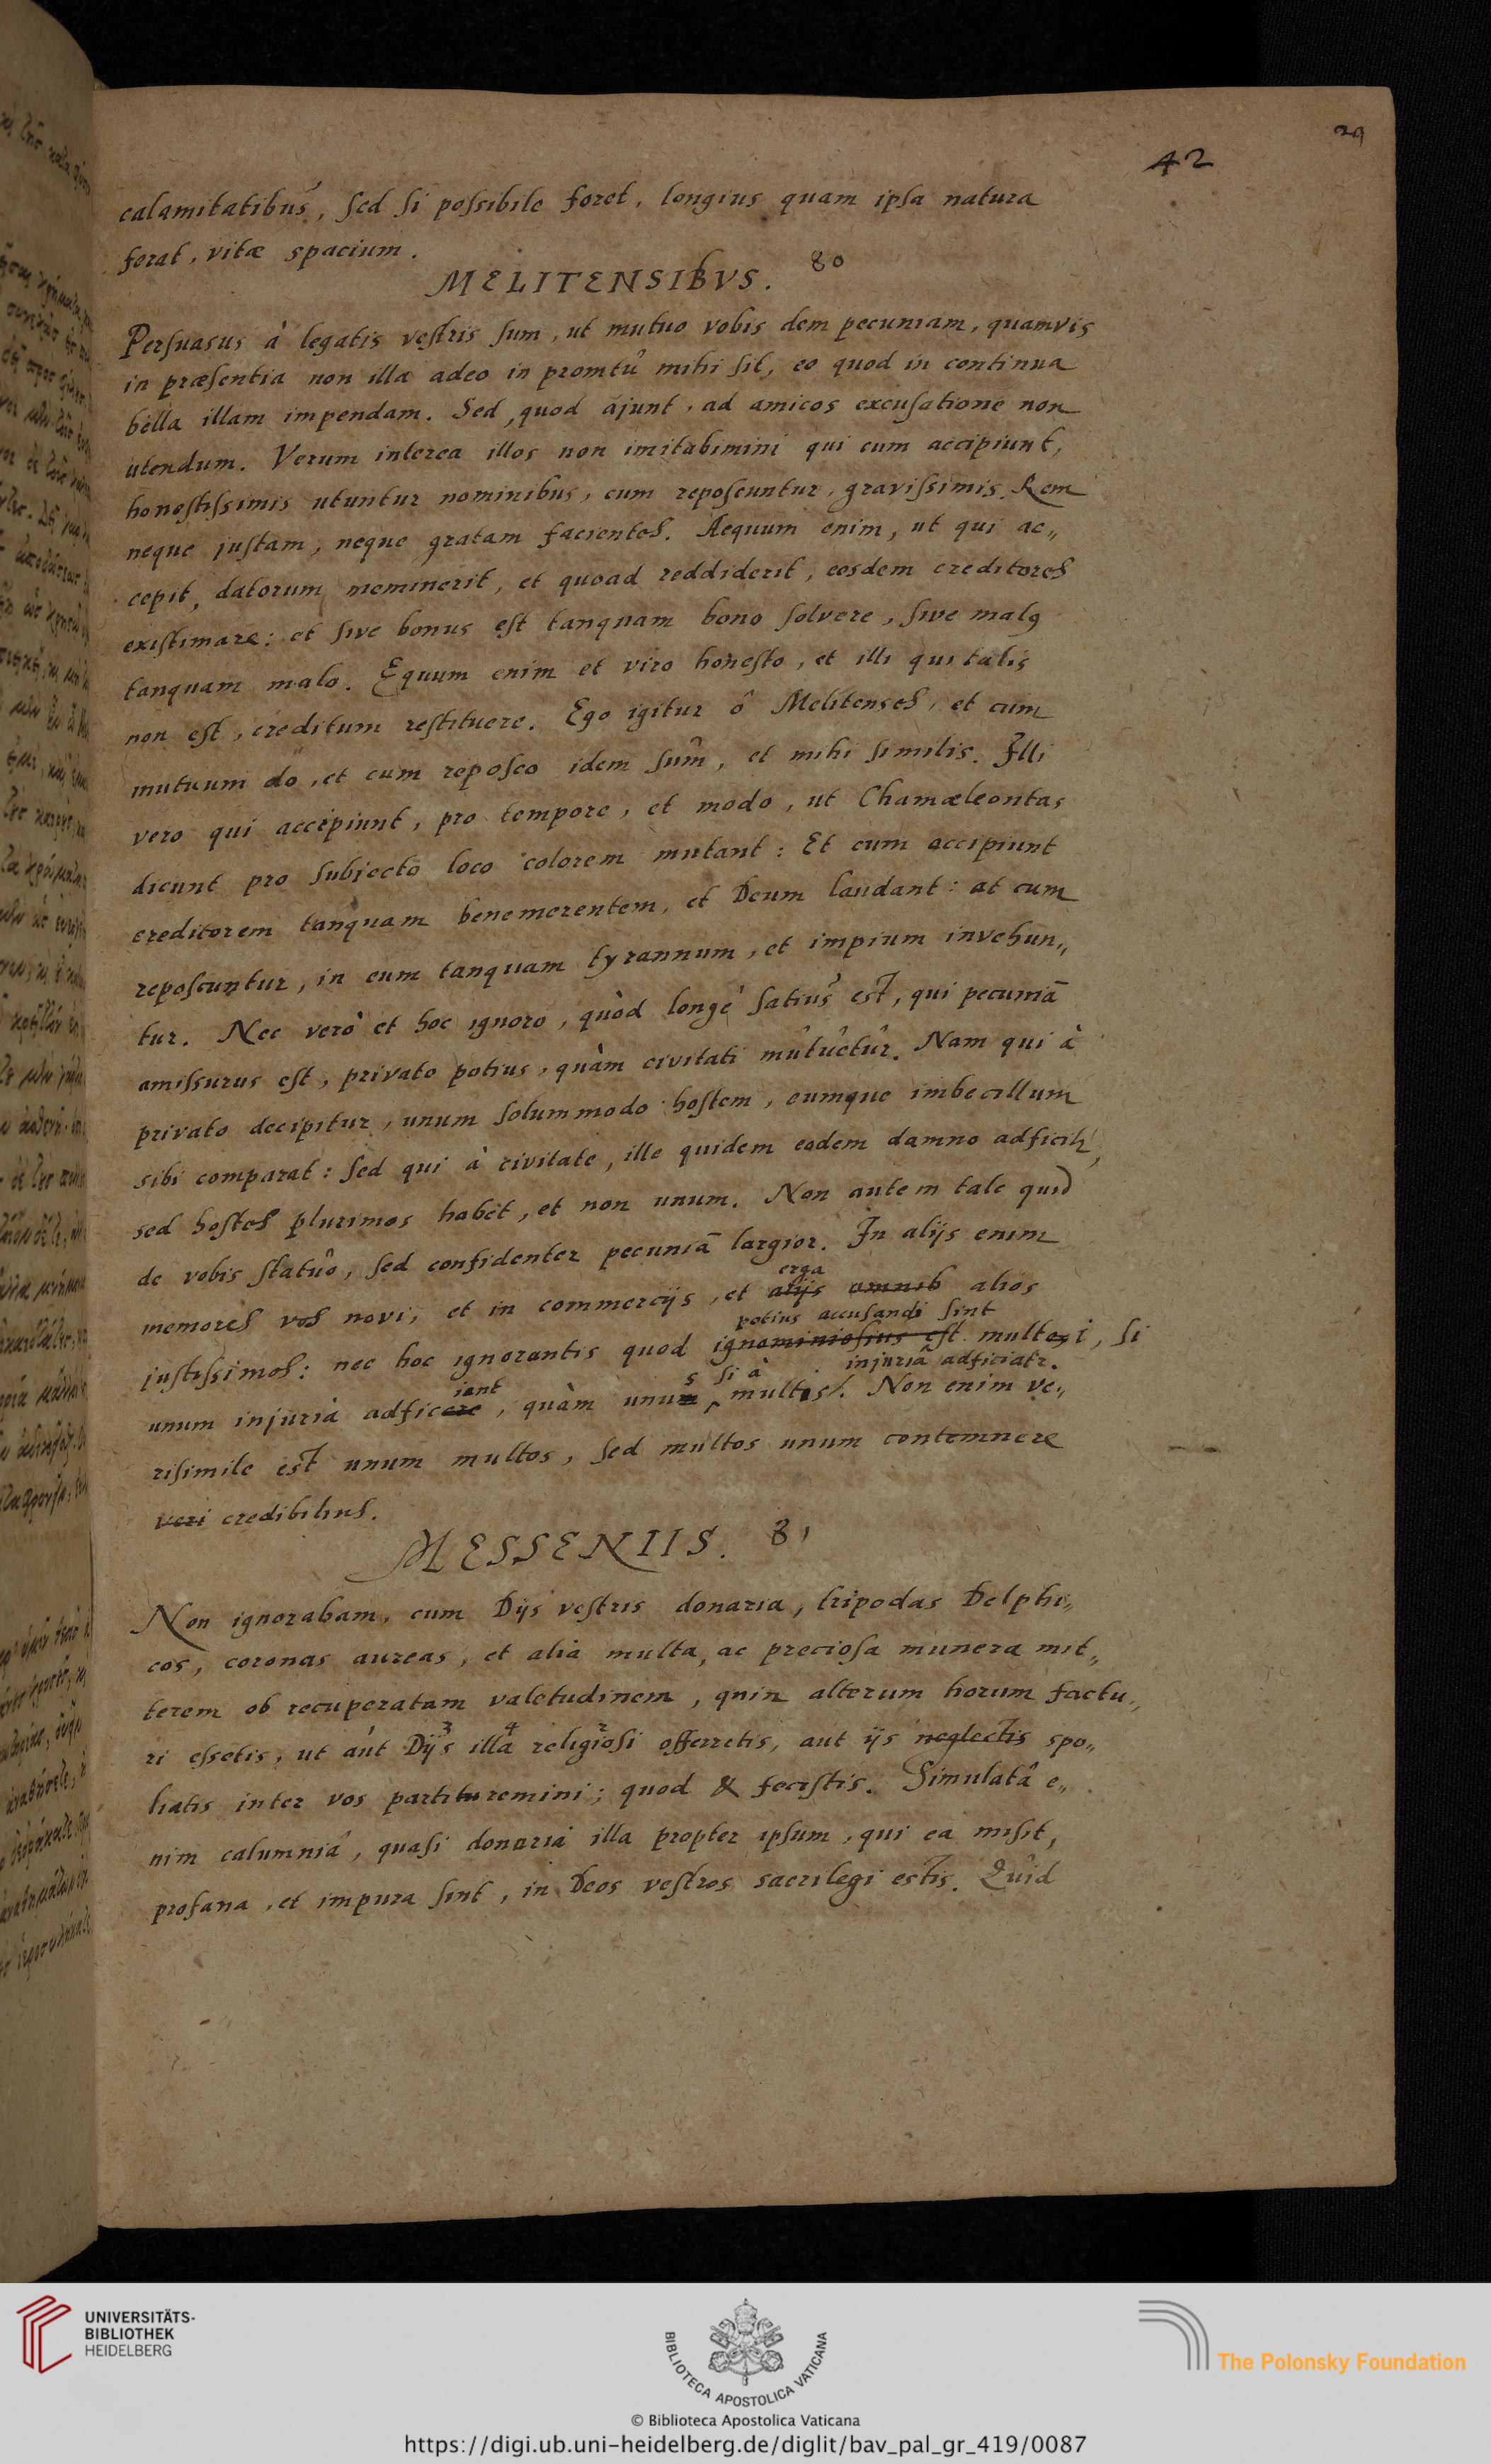 29
42
calamitatibus, sed si possibile foret, longius quam ipsa natura
ferat, vitæ spacium.
MELITENSIBVS. 80
Persuasus à legatis vestris sum, ut mutuo vobis dem pecuniam, quamvis
in præsentia non illa adeo in promtû mihi sit, eo quod in continua
bella illam impendam. Sed, quod ajunt, ad amicos excusatione non
utendum. Verum interea illos non imitabimini qui cum accipiunt,
honestissimis utuntur nominibus, cum reposcuntur, gravissimis. Rem
neque justam, neque gratam facientes. Aequum enim, ut qui ac„
cepit, datorum meminerit, et quoad reddiderit, eosdem creditores
existimare: et sive bonus est tanquam bono solvere, sive malꝰ
tanquam malo. Equum enim et viro honesto, et illi qui talis
non est, creditum restituere. Ego igitur ô Melitenses, et cum
mutuum do, et cum reposco idem sum, et mihi similis. Illi
vero qui accipiunt, pro tempore, et modo, ut Chamæleontas
dicunt pro subjecto loco colorem mutant: Et cum accipiunt
creditorem tanquam benemerentem, et Deum laudant: at cum
reposcuntur, in eum tanquam tyrannum, et impium invehun„
tur. Nec verò et hoc ignoro, quòd longè satius est, qui pecuniā
amissurus est, privato potius, quàm civitati mûtûetûr. Nam qui à
privato decipitur, unum solummodo hostem, eumque imbecillum
sibi comparat: sed qui à civitate, ille quidem eodem damno adficit,
sed hostes plurimos habet, et non unum. Non autem tale quid
de vobis statuo, sed confidenter pecuniā largior. In alijs enim
erga
memores vos novi, et in commercijs, et alijs omnib alios
potius accusandi sint
justissimos: nec hoc ignorantis quod ignominiosius est multi, si
iant s si à injuriâ adficiatr.
unum injuriâ adficere, quàm unum multis. Non enim ve„
risimile est unum multos, sed multos unum contemnere
veri credibilius.
MESSENIIS. 81
Non ignorabam, cum Dijs vestris donaria, tripodas Delphi„
cos, coronas aureas, et alia multa, ac preciosa munera mit„
terem ob recuperatam valetudinem, quin alterum horum factu„
3 4 2
ri essetis, ut aut Dijs illa religiosi offerretis, aut ijs neglectis spo„
liatis inter vos partituremini; quod & fecistis. Simulatâ e„
nim calumniâ, quasi donaria illa propter ipsum, qui ea misit,
profana, et impura sint, in Deos vestros sacrilegi estis. Quid
UNIVERSITÄTS-
BIBLIOTHEK
HEIDELBERG
BIBLIOTECA APOSTOLICA VATICANA
The Polonsky Foundation
© Biblioteca Apostolica Vaticana
https://digi.ub.uni-heidelberg.de/diglit/bav_pal_gr_419/0087